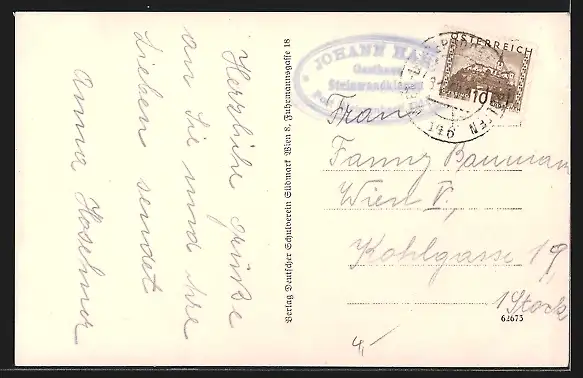 Herzliche Grüße
an Sie und Ihre
Lieben sendet
Anna
Verlag Deutscher Schulverein Südmark Wien 8, Fuhrmannsgasse 18
JOHANN
Gasthaus
ÖSTERREICH
10
Frau
Fanny Bauman
Wien V.,
Kohlgasse 19,
1 Stock
62675
4,-